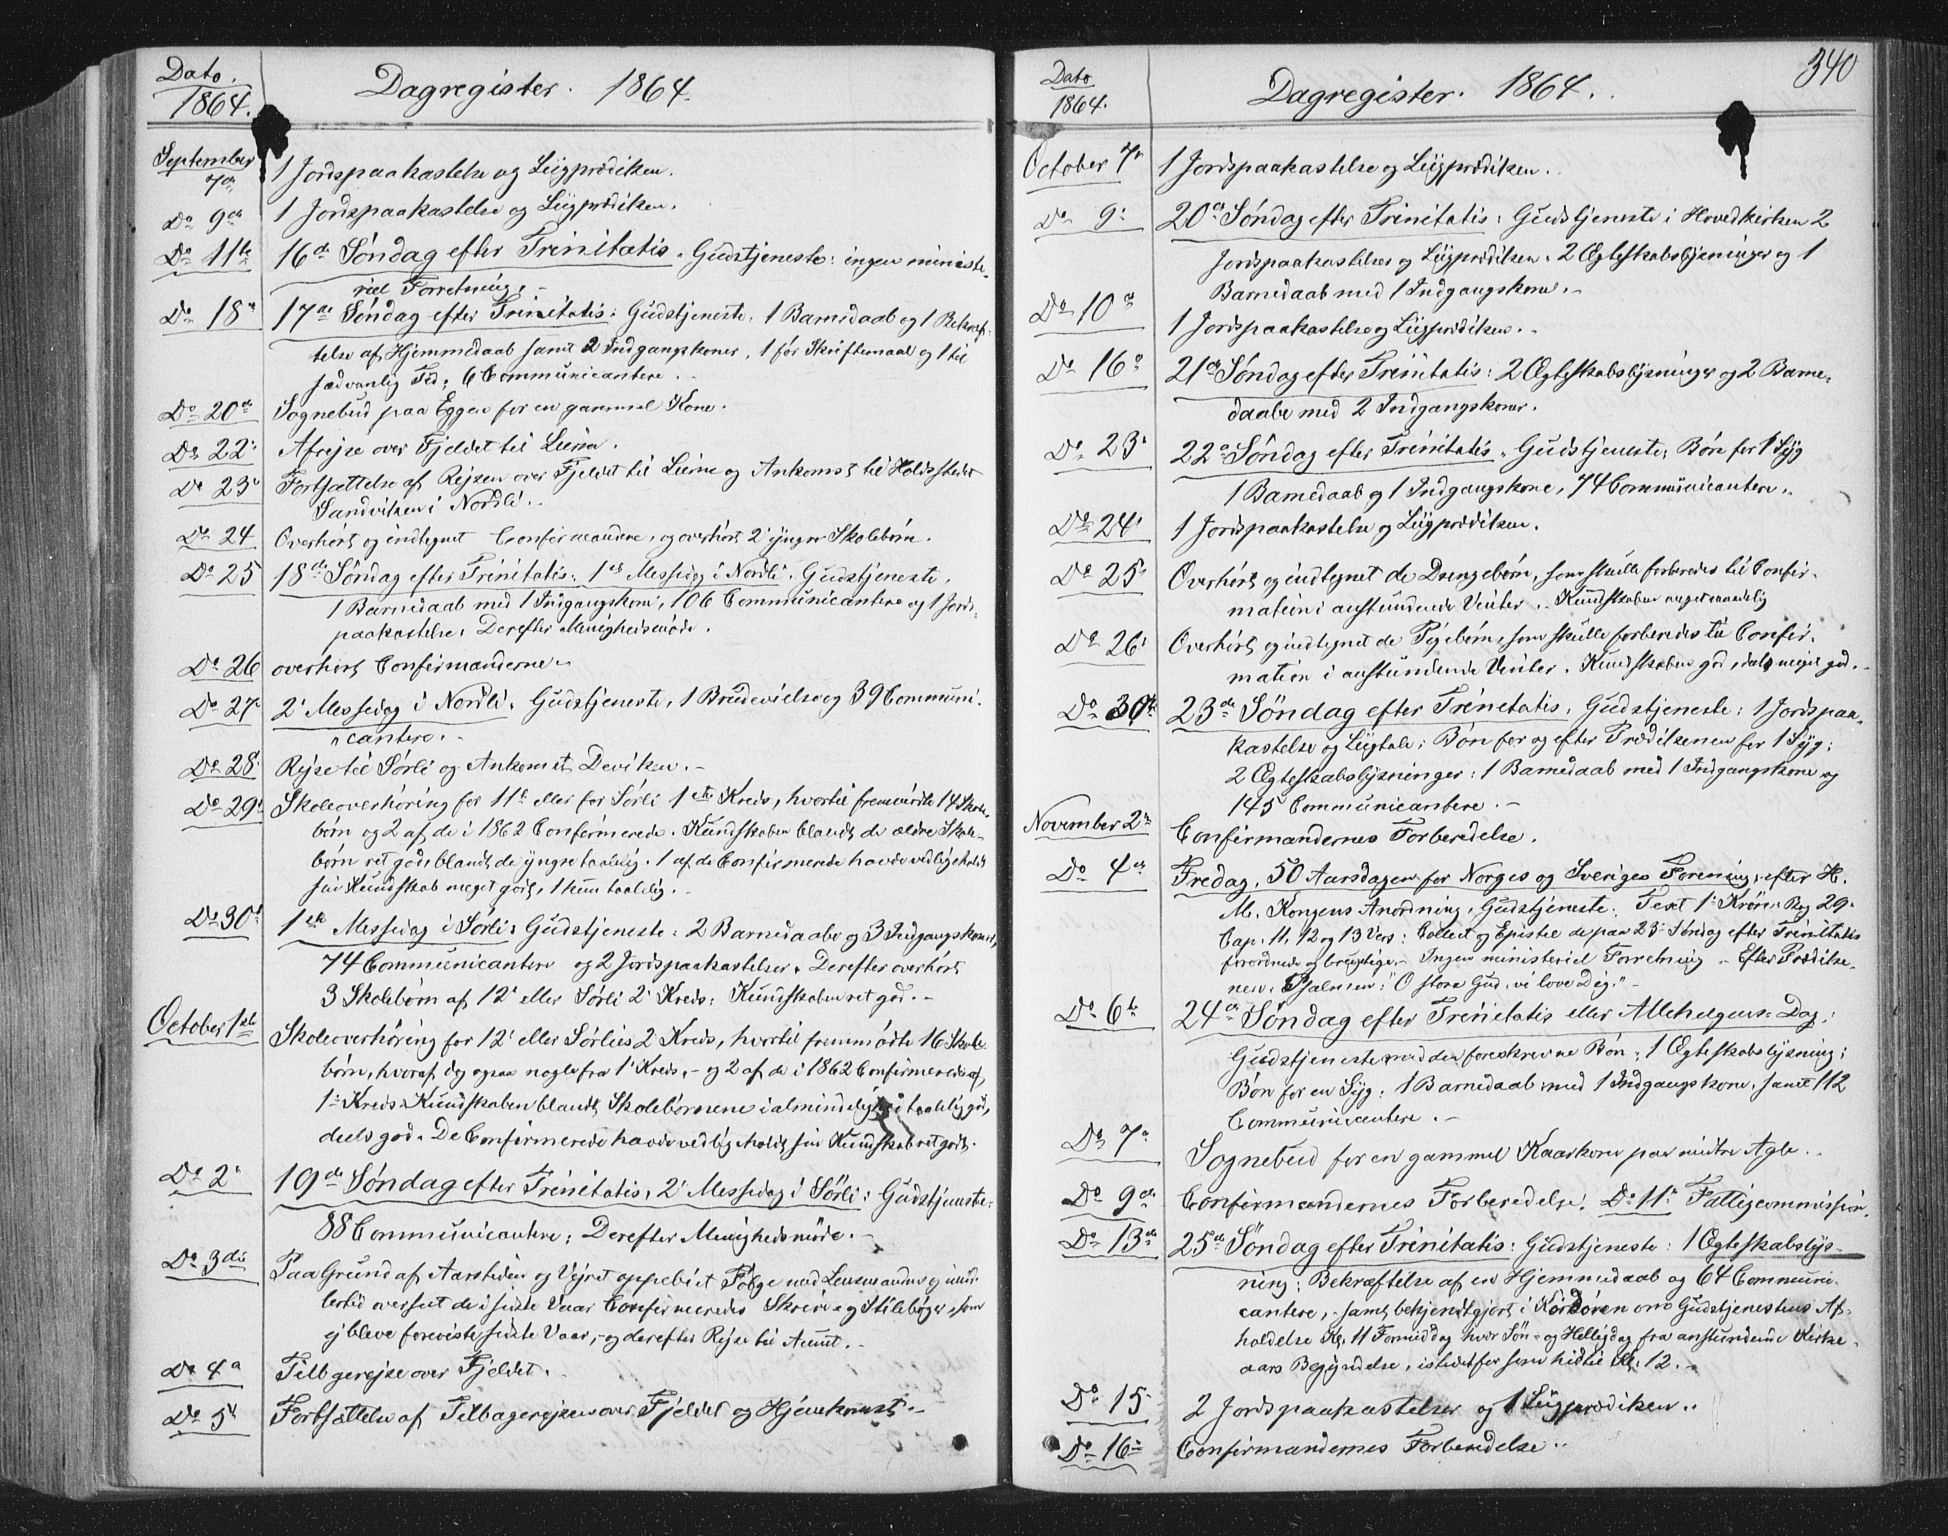 Dato.
1864.
Dagregister. 1864.
September
7de
1 Jordspaakastelse og Liigprædiken.
Do 9de
1 Jordspaakastelse og Liigprædiken.
Do 11te
16de Søndag efter Trinitatis. Gudstjeneste: ingen ministe-
riel Forretning.
Do 18de
17de Søndag efter Trinitatis: Gudstjeneste. 1 Barnedaab og 1 Bekræf-
telse af Hjemmedaab samt 2 Indgangskoner, 1 før Skriftemaal og 1 til
sædvanlig Tid. 6 Communicantere.
Do 20de
Sognebud paa Eggen for en gammel Kone.
Do 22.
Afrejse over Fjeldet til Lierne.
Do 23.
Fortsættelse af Rejsen over Fjeldet til Lierne og Ankomst til Holdstedet
Sandviken i Nordli.
Do 24
Overhørt og indtegnet Confirmanderne, og overhørt 2 yngre Skolebørn.
Do 25
18de Søndag efter Trinitatis. 1ste Messedag i Nordli. Gudstjeneste.
1 Barnedaab med 1 Indgangskone, 106 Communicantere og 1 Jords-
paakastelse. Derefter Menighedsmøde.
Do 26
overhørt Confirmanderne.
Do 27.
2. Messedag i Nordli. Gudstjeneste, 1 Brudevielse og 39 Communi-
cantere.
Do 28.
Rejse til Sørli og Ankomst Deviken.
Do 29.
Skoleoverhøring for 11te eller for Sørli 1ste Kreds, hvortil fremmødte 14 Skole-
børn og 2 af de i 1862 Confirmerede. Kundskaben blandt de ældre Skole-
børn ret god, blandt de yngre taalelig. 1 af de Confirmerede havde vedligeholdt
sin Kundskab meget godt, 1 kun taalelig.
Do 30.
1ste Messedag i Sørli: Gudstjeneste: 2 Barnedaabe og 3 Indgangskoner,
74 Communicantere og 2 Jordspaakastelser. Derefter overhørt
3 Skolebørn af 12. eller Sørli 2. Kreds: Kundskaben ret god.
October 1ste
Skoleoverhøring for 12. eller Sørlies 2 Kreds, hvortil fremmødte 16 Skole-
børn, hvoraf dog ogsaa nogle fra 1. Kreds, og 2 af de i 1862 Confirmerede af
1. Kreds. Kundskaben blandt Skolebørnene i almindelighed taalelig god,
deels god. De Confirmerede havde vedligeholdt sin Kundskab ret godt.
Do 2.
19de Søndag efter Trinitatis, 2. Messedag i Sørli: Gudstjeneste:
88 Communicantere: Derefter Menighedsmøde.
Do 3die
Paa Grund af Aarstiden og Vejret oppebiet Følge med Lensmanden, og imid-
lertid overseet de i sidste Vaar Confirmeredes Skrive- og Stilebøger, som
ej bleve foreviste sidste Vaar, og derefter Rejse til Aunet.
Do 4de
Tilbagerejse over Fjeldet.
Do 5te
Fortsættelse af Tilbagerejsen over Fjeldet og Hjemkomst.
Dato
1864.
Dagregister. 1864.
340
October 7de
1 Jordspaakastelse og Liigprædiken.
Do 9.
20de Søndag efter Trinitatis: Gudstjeneste i Hovedkirken 2
Jordspaakastelser og Liigprædiken. 2 Ægteskabslysninger og 1
Barnedaab med 1 Indgangskone.
Do 10de
1 Jordspaakastelse og Liigprædiken.
Do 16de
21de Søndag efter Trinitatis: 2 Ægteskabslysninger og 2 Barne-
daabe med 2 Indgangskoner.
Do 23.
22de Søndag efter Trinitatis. Gudstjeneste: Bøn for 1 Syg
1 Barnedaab og 1 Indgangskone, 74 Communicantere.
Do 24.
1 Jordspaakastelse og Liigprædiken.
Do 25.
Overhørt og indtegnet de Drengebørn, som skulle forberedes til Confir-
mation i anstundende Vinter. Kundskaben
Do 26.
Overhørt og indtegnet de Pigebørn, som skulle forberedes til Confir-
mation i anstundende Vinter. Kundskaben god, deels meget god.
Do 30te
23de Søndag efter Trinitatis. Gudstjeneste: 1 Jordspaa-
kastelse og Liigtale: Bøn for og efter Prædikenen for 1 Syg:
2 Ægteskabslysninger: 1 Barnedaab med 1 Indgangskone og
145 Communicantere.
November 2de
Confirmandernes Forberedelse.
Do 4de
Fredag, 50 Aarsdagen for Norges og Sveriges Forening, efter H.
M. Kongens Anordning, Gudstjeneste. Text 1. Krøn. Bog 29.
Cap. 11, 12 og 13 Vers: Collect og Epistel de paa 23. Søndag efter Trinitatis
forordnede og brugelige. Ingen ministeriel Forretning. Efter Prædike-
nen: Psalmen: "O store Gud, vi love Dig."
Do 6te
24de Søndag efter Trinitatis eller Allehelgens-Dag.
Gudstjeneste med den foreskrevne Bøn, 1 Ægteskabslysning;
Bøn for en Syg: 1 Barnedaab med 1 Indgangskone, samt 112
Communicantere.
Do 7de
Sognebud for en gammel Kaarkone paa nedre Agle.
Do 9de
Confirmandernes Forberedelse. Do 11te Fattigcommission.
Do 13de
25de Søndag efter Trinitatis: Gudstjeneste: 1 Ægteskabslys-
ning: Bekræftelse af en Hjemmedaab og 64 Communi-
cantere, samt bekjendtgjort i Kordøren om Gudstjenestens Af-
holdelse Kl. 11 Formiddag hver Søn- og Helligdag fra anstundende Kirke-
aars Begyndelse, istedetfor som hidtil Kl. 12.
Do 15.
2 Jordspaakastelser og 1 Liigprædiken.
Do 16de
Confirmandernes Forberedelse.